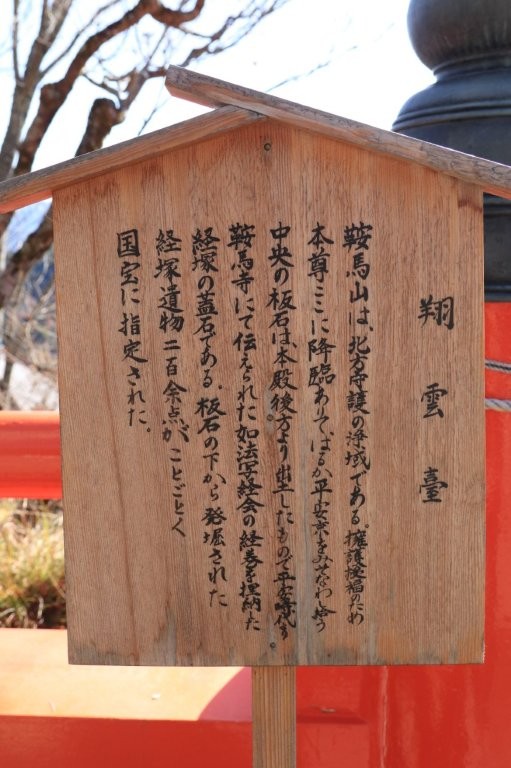 翔雲臺
鞍馬山は、北方守護の浄域である。擁護授福のため
本尊ここに降臨ありて、はるか平安京をみそなわし給う
中央の板石は、本殿後方より出土したもので平安時代から
鞍馬寺にて伝えられた如法写経会の経巻を埋納した
経塚の蓋石である。板石の下から発掘された
経塚遺物二百余点が、ことごとく
国宝に指定された。